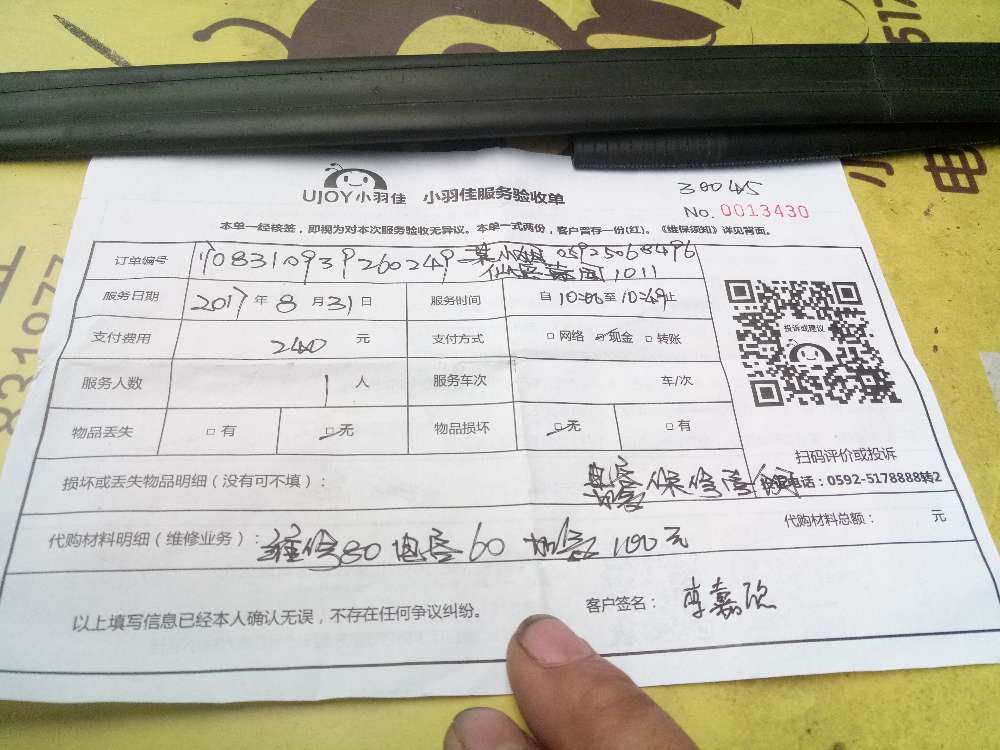 UJOY小羽佳 小羽佳服务验收单
300445
No. 0013430
本单一经核签，即视为对本次服务验收无异议。本单一式两份，客户留存一份(红)。《维保须知》详见背面。
订单编号 05925068496
1011
服务日期 2017年8月31日 服务时间 自10:06至10:49止
支付费用 240 元 支付方式 □网络 ☑现金 □转账
投诉或建议
服务人数 1 人 服务车次 车/次
物品丢失 □有 ☑无 物品损坏 ☑无 □有
扫码评价或投诉
损坏或丢失物品明细（没有可不填）： 保修 电话：0592-5178888转2
代购材料明细（维修业务）： 维修80 电容60 100元 代购材料总额： 元
以上填写信息已经本人确认无误，不存在任何争议纠纷。 客户签名： 李嘉欣